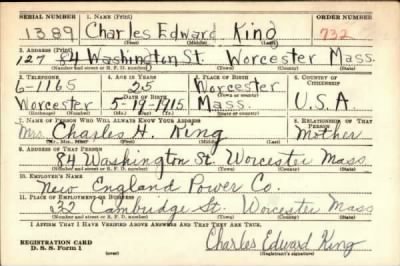 SERIAL NUMBER 1. NAME (Print) ORDER NUMBER
1389 Charles Edward King 732
(First) (Middle) (Last)
2. ADDRESS (Print)
127 84 Washington St. Worcester Mass.
(Number and street or R. F. D. number) (Town) (County) (State)
3. TELEPHONE 4. AGE IN YEARS 5. PLACE OF BIRTH 6. COUNTRY OF CITIZENSHIP
6-1165 25 Worcester
DATE OF BIRTH (Town or county)
Worcester 5-19-1915 Mass. U.S.A.
(Exchange) (No.) (Mo.) (Day) (Yr.) (State or country)
7. NAME OF PERSON WHO WILL ALWAYS KNOW YOUR ADDRESS 8. RELATIONSHIP OF THAT PERSON
Mrs. Charles H. King Mother
(Mr., Mrs., Miss) (First) (Middle) (Last)
9. ADDRESS OF THAT PERSON
84 Washington St. Worcester Mass.
(Number and street or R. F. D. number) (Town) (County) (State)
10. EMPLOYER'S NAME
New England Power Co.
11. PLACE OF EMPLOYMENT OR BUSINESS
32 Cambridge St. Worcester Mass
(Number and street or R. F. D. number) (Town) (County) (State)
I AFFIRM THAT I HAVE VERIFIED ABOVE ANSWERS AND THAT THEY ARE TRUE.
REGISTRATION CARD
D. S. S. Form 1 (over) Charles Edward King
(Registrant's signature)